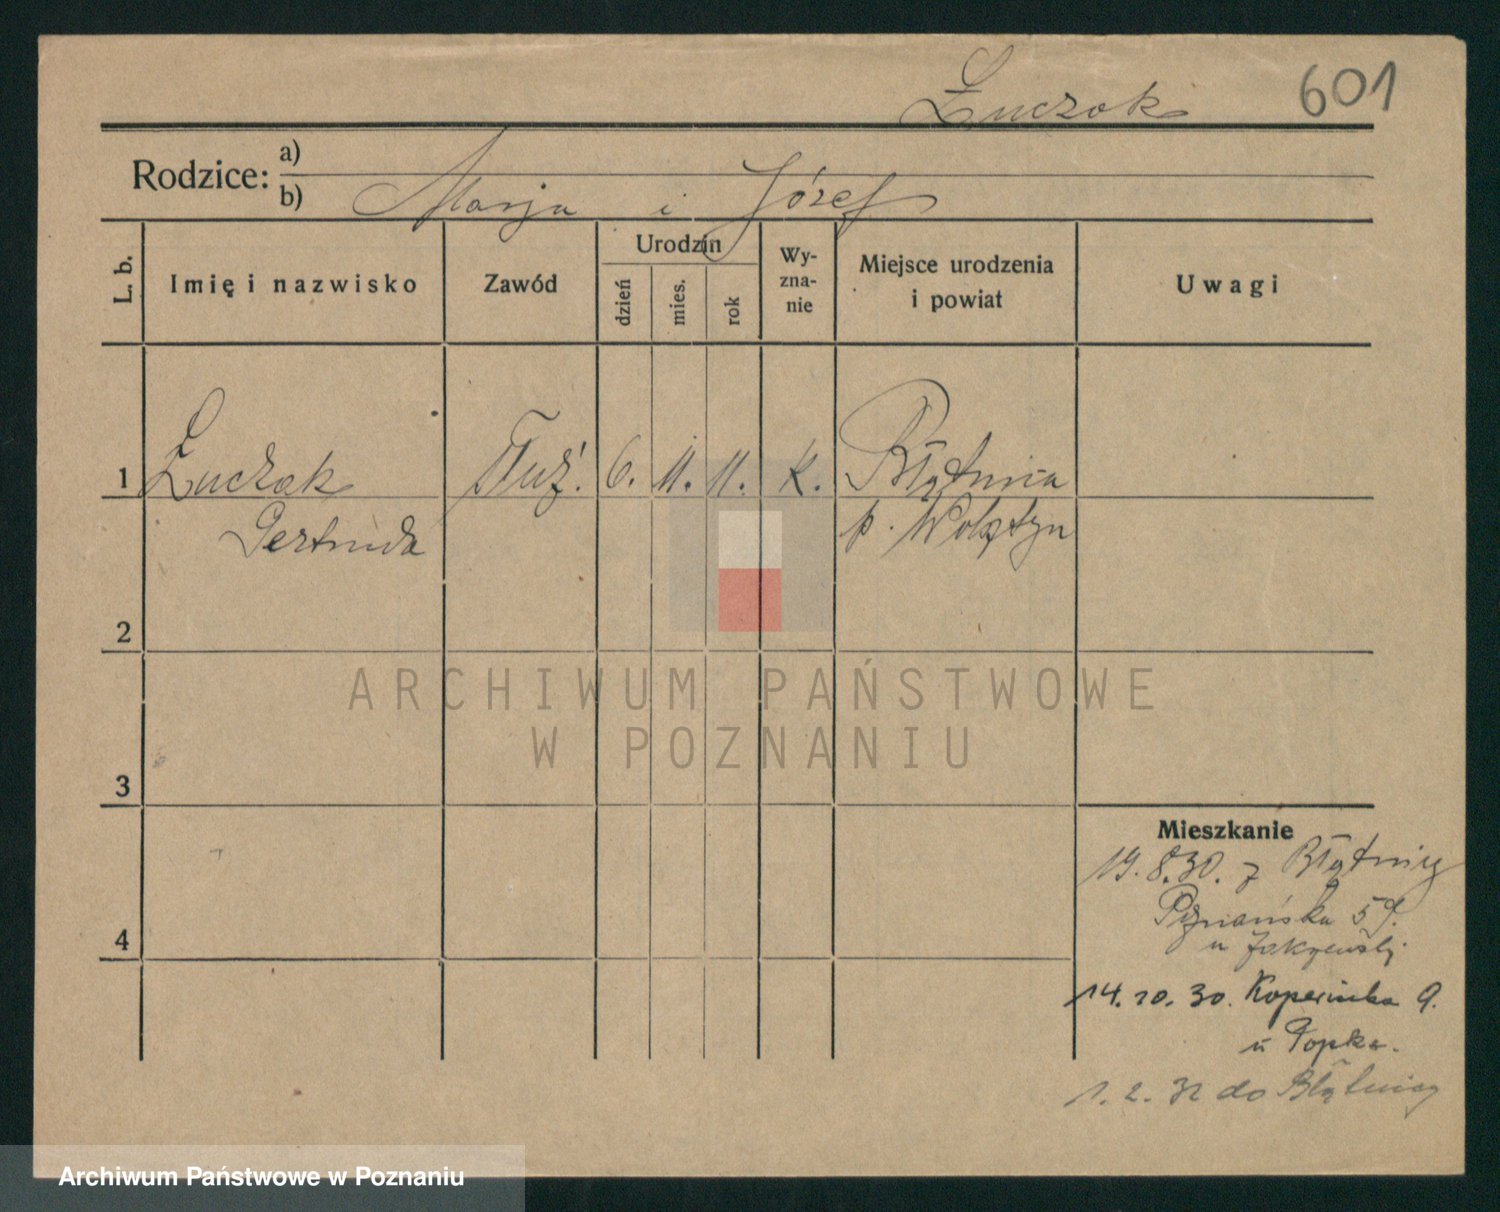 Łuczak 601
Rodzice: a)
b) Marja i Józef
L. b. Imię i nazwisko Zawód Urodzin dzień mies. rok Wy-zna-nie Miejsce urodzenia i powiat Uwagi
1 Łuczak Służ. 6. 11. 11. K. Błętnia
Gertruda p. Wolsztyn
2
ARCHIWUM PAŃSTWOWE
W POZNANIU
3
Mieszkanie
19.8.30. z
Poznańska
u
4
14.10.30. 9.
u Popka.
1.2.32 do
Archiwum Państwowe w Poznaniu